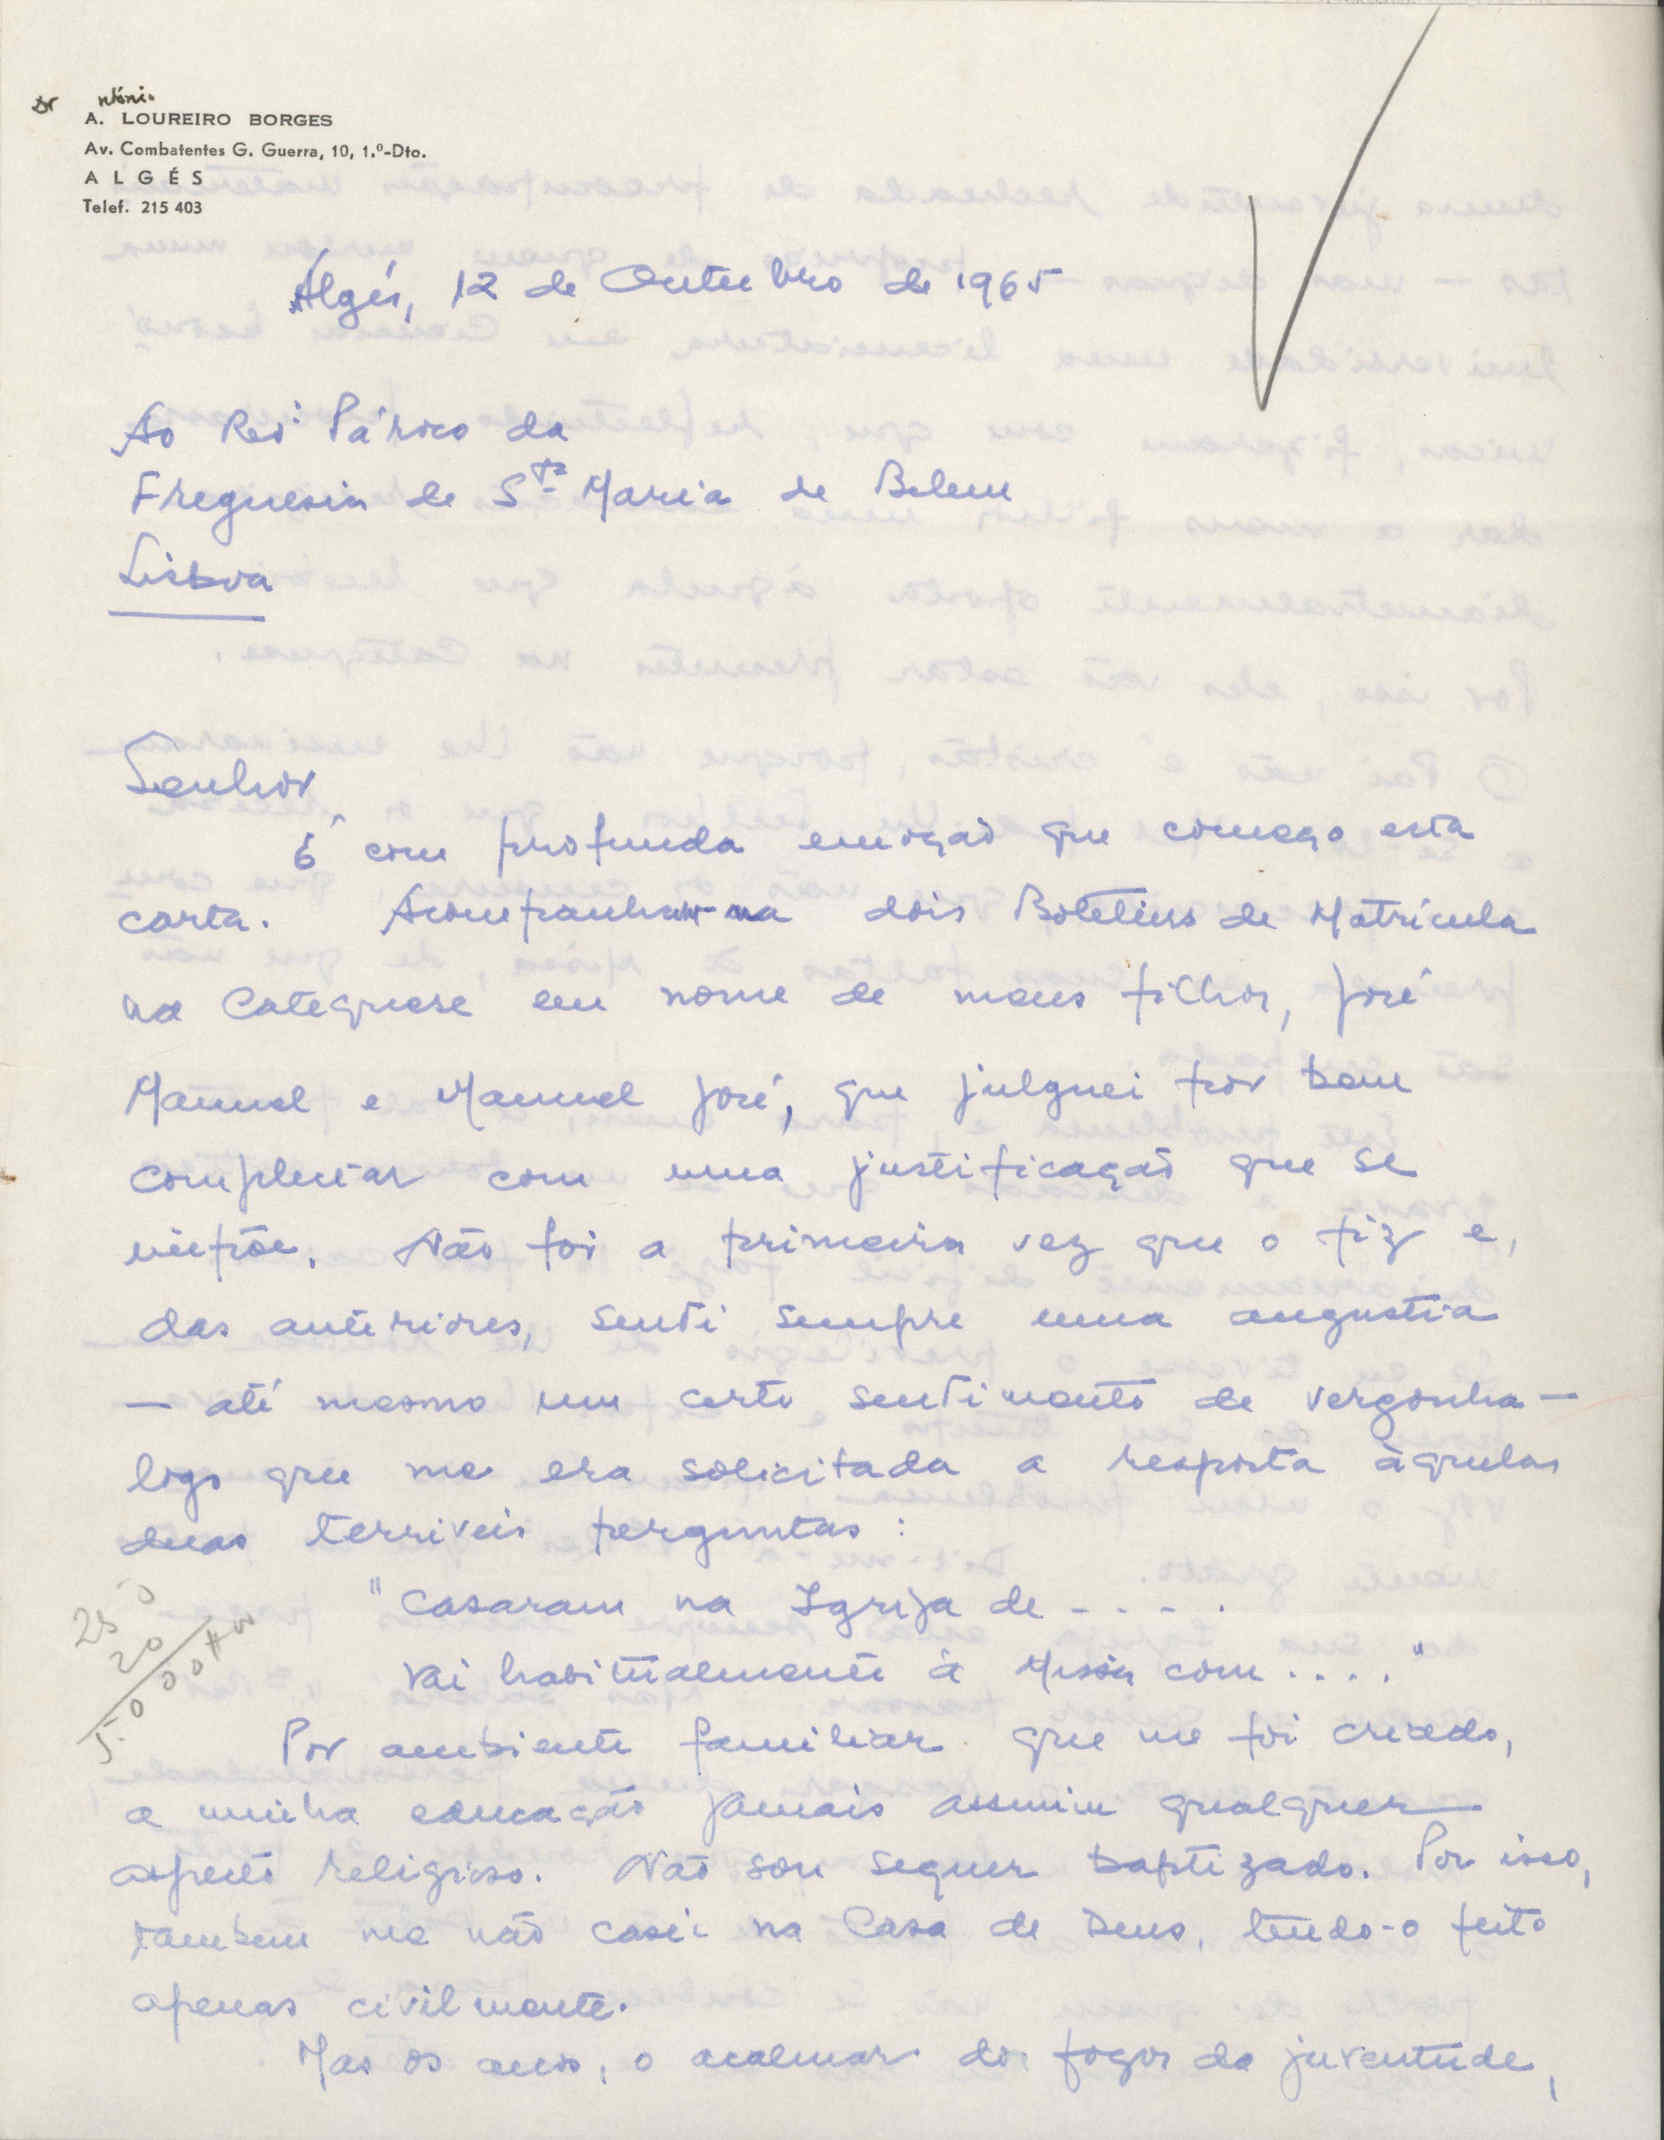 Dr ntónio
A. LOUREIRO BORGES
Av. Combatentes G. Guerra, 10, 1.º-Dto.
ALGÉS
Telef. 215 403
Algés, 12 de Outubro de 1965
Ao Revº Pároco da
Freguesia de Stª Maria de Belem
Lisboa
Senhor
É com profunda emoção que começo esta
carta. Acompanham-na dois Boletins de Matrícula
na Catequese em nome de meus filhos, José
Manuel e Manuel José, que julguei por bem
completar com uma justificação que se
impõe. Não foi a primeira vez que o fiz e,
das anteriores, senti sempre uma angustia
— até mesmo um certo sentimento de vergonha —
logo que me era solicitada a resposta àquelas
duas terriveis perguntas:
"Casaram na Igreja de - - - .
Vai habitualmente à Missa com . . . ."
25
20
5.000
Por ambiente familiar que me foi criado,
a minha educação jamais assumiu qualquer
aspecto religioso. Não sou sequer baptizado. Por isso,
tambem me não casei na Casa de Deus, tendo-o feito
apenas civilmente.
Mas os anos, o acalmar dos fogos da juventude,